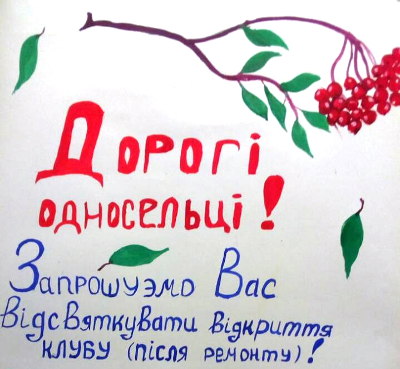 Дорогі
односельці!
Запрошуэмо Вас
відсвяткувати відкриття
клубу (після ремонту)!